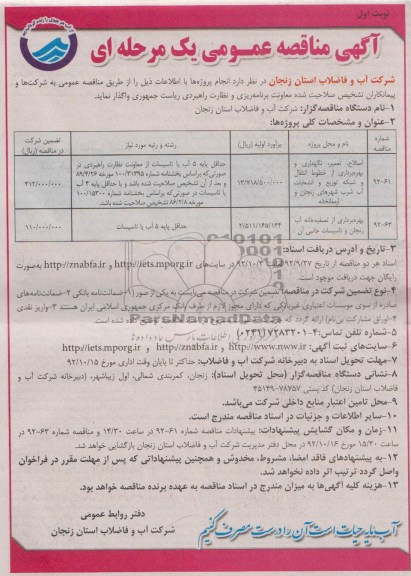 نوبت اول
آگهی مناقصه عمومی یک مرحله ای
شرکت آب و فاضلاب استان زنجان در نظر دارد انجام پروژه‌ها با اطلاعات ذیل را از طریق مناقصه عمومی به شرکت‌ها و
پیمانکاران تشخیص صلاحیت شده معاونت برنامه‌ریزی و نظارت راهبردی ریاست جمهوری واگذار نماید.
۱-نام دستگاه مناقصه‌گزار: شرکت آب و فاضلاب استان زنجان
۲-عنوان و مشخصات کلی پروژه‌ها:
شماره مناقصه | نام و محل پروژه | برآورد اولیه (ریال) | رشته و رتبه مورد نیاز | تضمین شرکت در مناقصه (ریال)
۹۲-۶۱ | اصلاح، تعمیر، نگهداری و بهره‌برداری از خطوط انتقال و شبکه توزیع و انشعابات آب شرب شهرهای زنجان و ارمغانخانه | ۱۳/۷۱۸/۵۰۰/۰۰۰ | حداقل پایه ۵ آب یا تاسیسات از معاونت نظارت راهبردی در صورتی‌که براساس بخشنامه شماره ۱۰۰/۲۱۳۴۵ مورخه ۸۹/۴/۲۶ و بعد از آن تشخیص صلاحیت شده باشد و یا حداقل پایه ۴ آب یا تاسیسات در صورتی‌که براساس بخشنامه شماره ۱۰۰/۱۵۳۰۰ مورخه ۸۶/۲/۸ تشخیص صلاحیت شده باشد. | ۴۱۲/۰۰۰/۰۰۰
۹۲-۶۳ | بهره‌برداری از تصفیه‌خانه آب زنجان و تاسیسات جانبی آن | ۲/۵۱۱/۱۶۵/۱۳۴ | حداقل پایه ۵ آب یا تاسیسات | ۱۱۰/۰۰۰/۰۰۰
۳-تاریخ و آدرس دریافت اسناد:
اسناد هر دو مناقصه از تاریخ ۹۲/۹/۲۷ لغایت ۹۲/۱۰/۳ در سایت‌های http://iets.mporg.ir و http://znabfa.ir به‌صورت
رایگان جهت دریافت موجود است.
۴-نوع تضمین شرکت در مناقصه: تضمین شرکت در مناقصه می‌بایست به یکی از صور: ۱-ضمانتنامه بانکی ۲-ضمانت‌نامه‌های
صادره از سوی موسسات اعتباری غیربانکی که دارای مجوز لازم از طرف بانک مرکزی جمهوری اسلامی ایران هستند ۳-واریز نقدی
۵-شماره تلفن تماس: ۴-۷۲۸۳۲۰۱ (۰۲۴۱)
۶-سایت‌های ثبت آگهی: http://www.nww.ir و http://znabfa.ir و http://iets.mporg.ir
۷-مهلت تحویل اسناد به دبیرخانه شرکت آب و فاضلاب: حداکثر تا پایان وقت اداری مورخ ۹۲/۱۰/۱۵
۸-نشانی دستگاه مناقصه‌گزار (محل تحویل اسناد): زنجان، کمربندی شمالی، اول زیباشهر، (دبیرخانه شرکت آب و
فاضلاب استان زنجان) کدپستی ۷۸۷۵۷-۴۵۱۴۹
۹-محل تامین اعتبار منابع داخلی شرکت می‌باشد.
۱۰-سایر اطلاعات و جزئیات در اسناد مناقصه مندرج است.
۱۱-زمان و مکان گشایش پیشنهادات: پیشنهادات مناقصه شماره ۶۱-۹۲ در ساعت ۱۴/۳۰ و مناقصه شماره ۶۳-۹۲ در
ساعت ۱۵/۳۰ مورخ ۹۲/۱۰/۱۶ در محل دفتر مدیریت شرکت آب و فاضلاب استان زنجان بازگشایی خواهد شد.
۱۲-به پیشنهادهای فاقد امضا، مشروط، مخدوش و همچنین پیشنهاداتی که پس از مهلت مقرر در فراخوان
واصل گردد ترتیب اثر داده نخواهد شد.
۱۳-هزینه کلیه آگهی‌ها به میزان مندرج در اسناد مناقصه به عهده برنده مناقصه خواهد بود.
دفتر روابط عمومی
شرکت آب و فاضلاب استان زنجان
آب مایه حیات است آن را درست مصرف کنیم
ParsNamadData